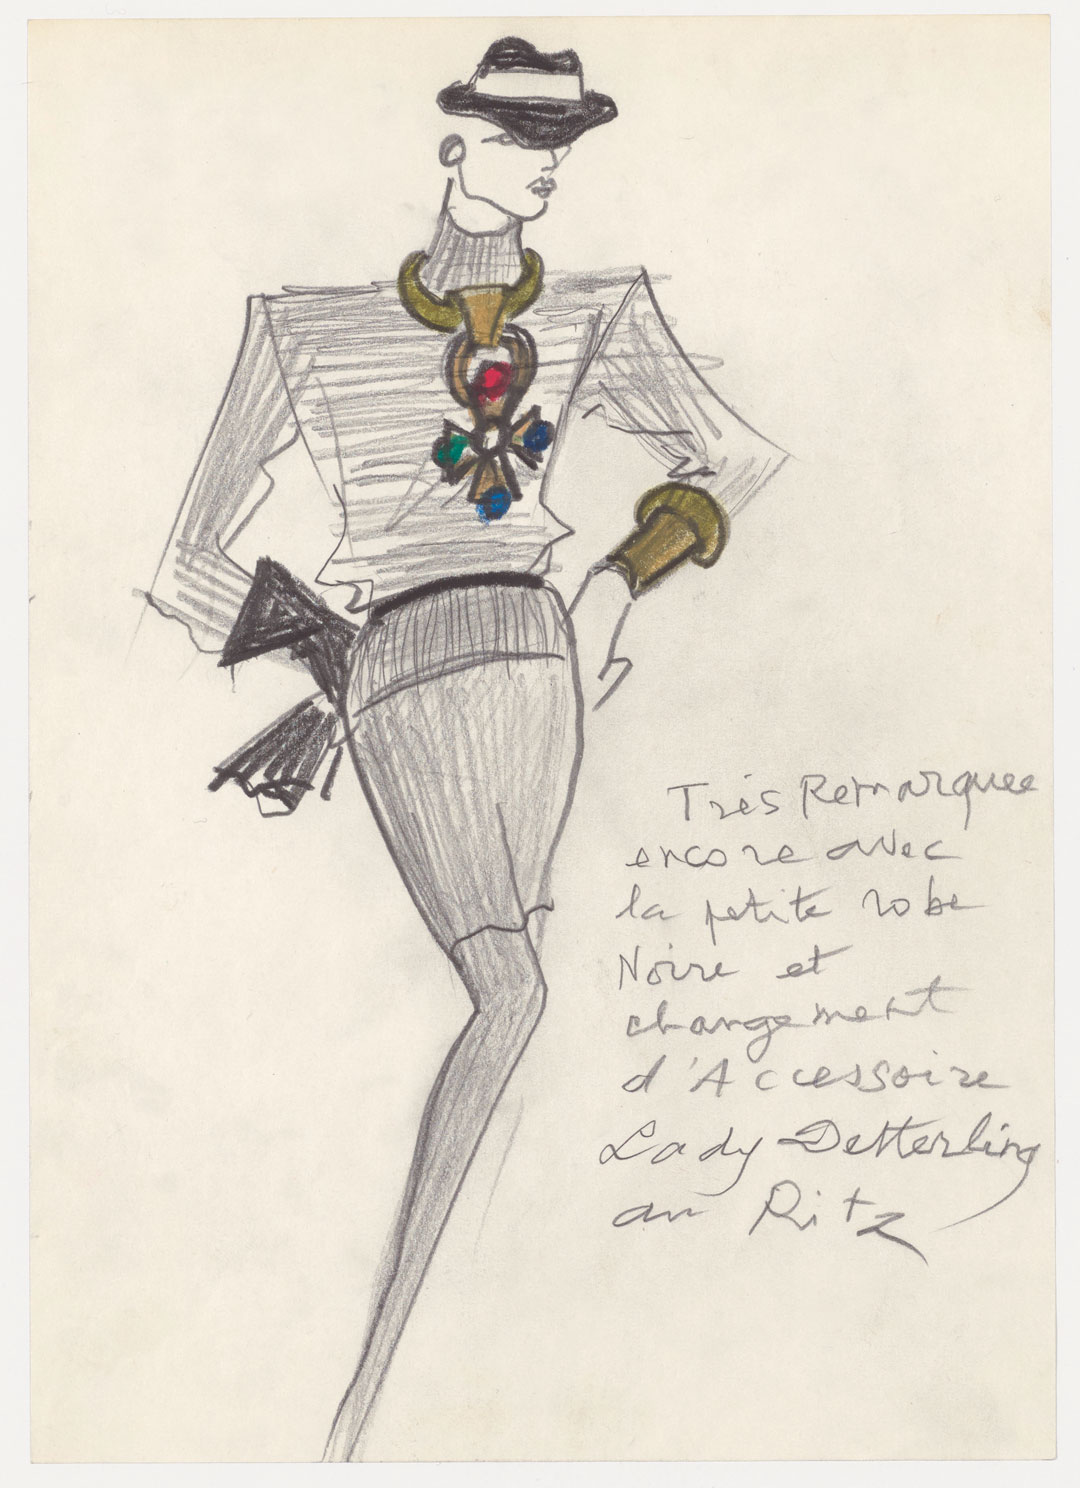 Trés Remarquee
encore avec
la petite robe
Noire et
changement
d'Accessoire
Lady Detterling
au Ritz